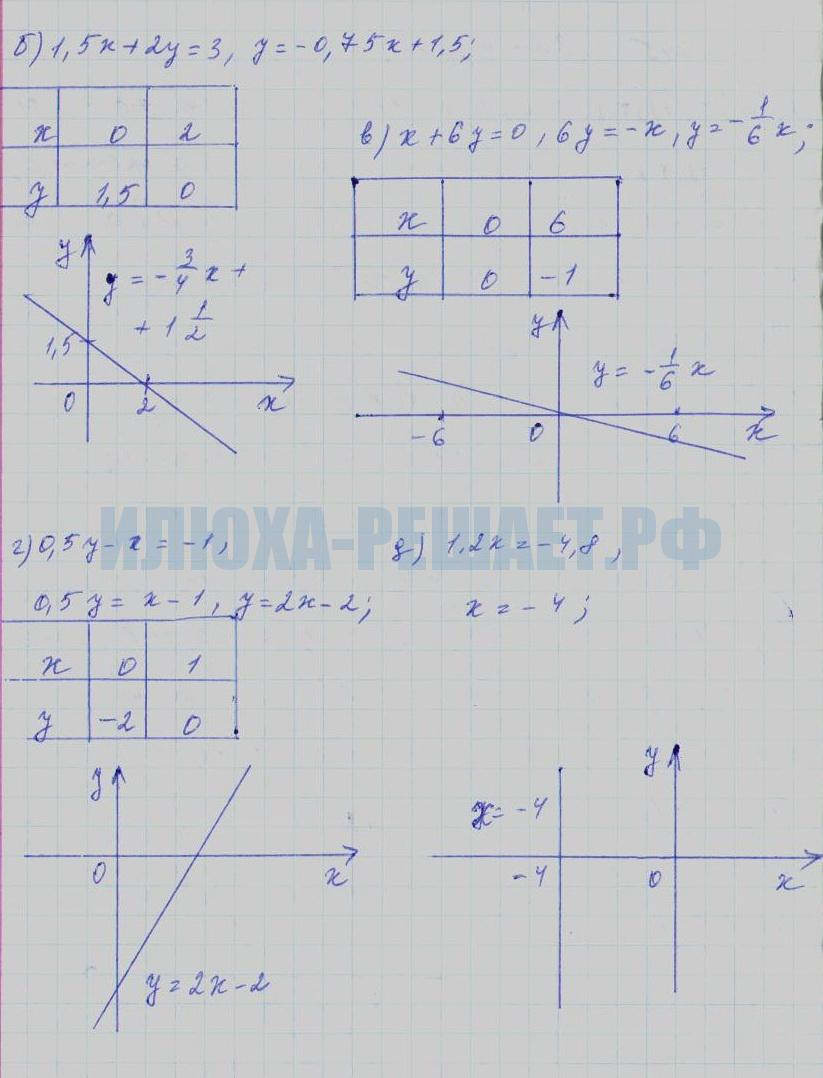 б) 1,5x+2y=3, y=-0,75x+1,5;
x 0 2
y 1,5 0
y
y = -3/4 x +
+ 1 1/2
1,5
0 2 x
в) x+6y=0, 6y=-x, y=-1/6 x;
x 0 6
y 0 -1
y
y = -1/6 x
-6 0 6 x
ИЛЮХА-РЕШАЕТ.РФ
г) 0,5y-x=-1;
0,5y=x-1, y=2x-2;
x 0 1
y -2 0
y
0 x
y=2x-2
д) 1,2x=-4,8,
x=-4;
y
x=-4
-4 0 x